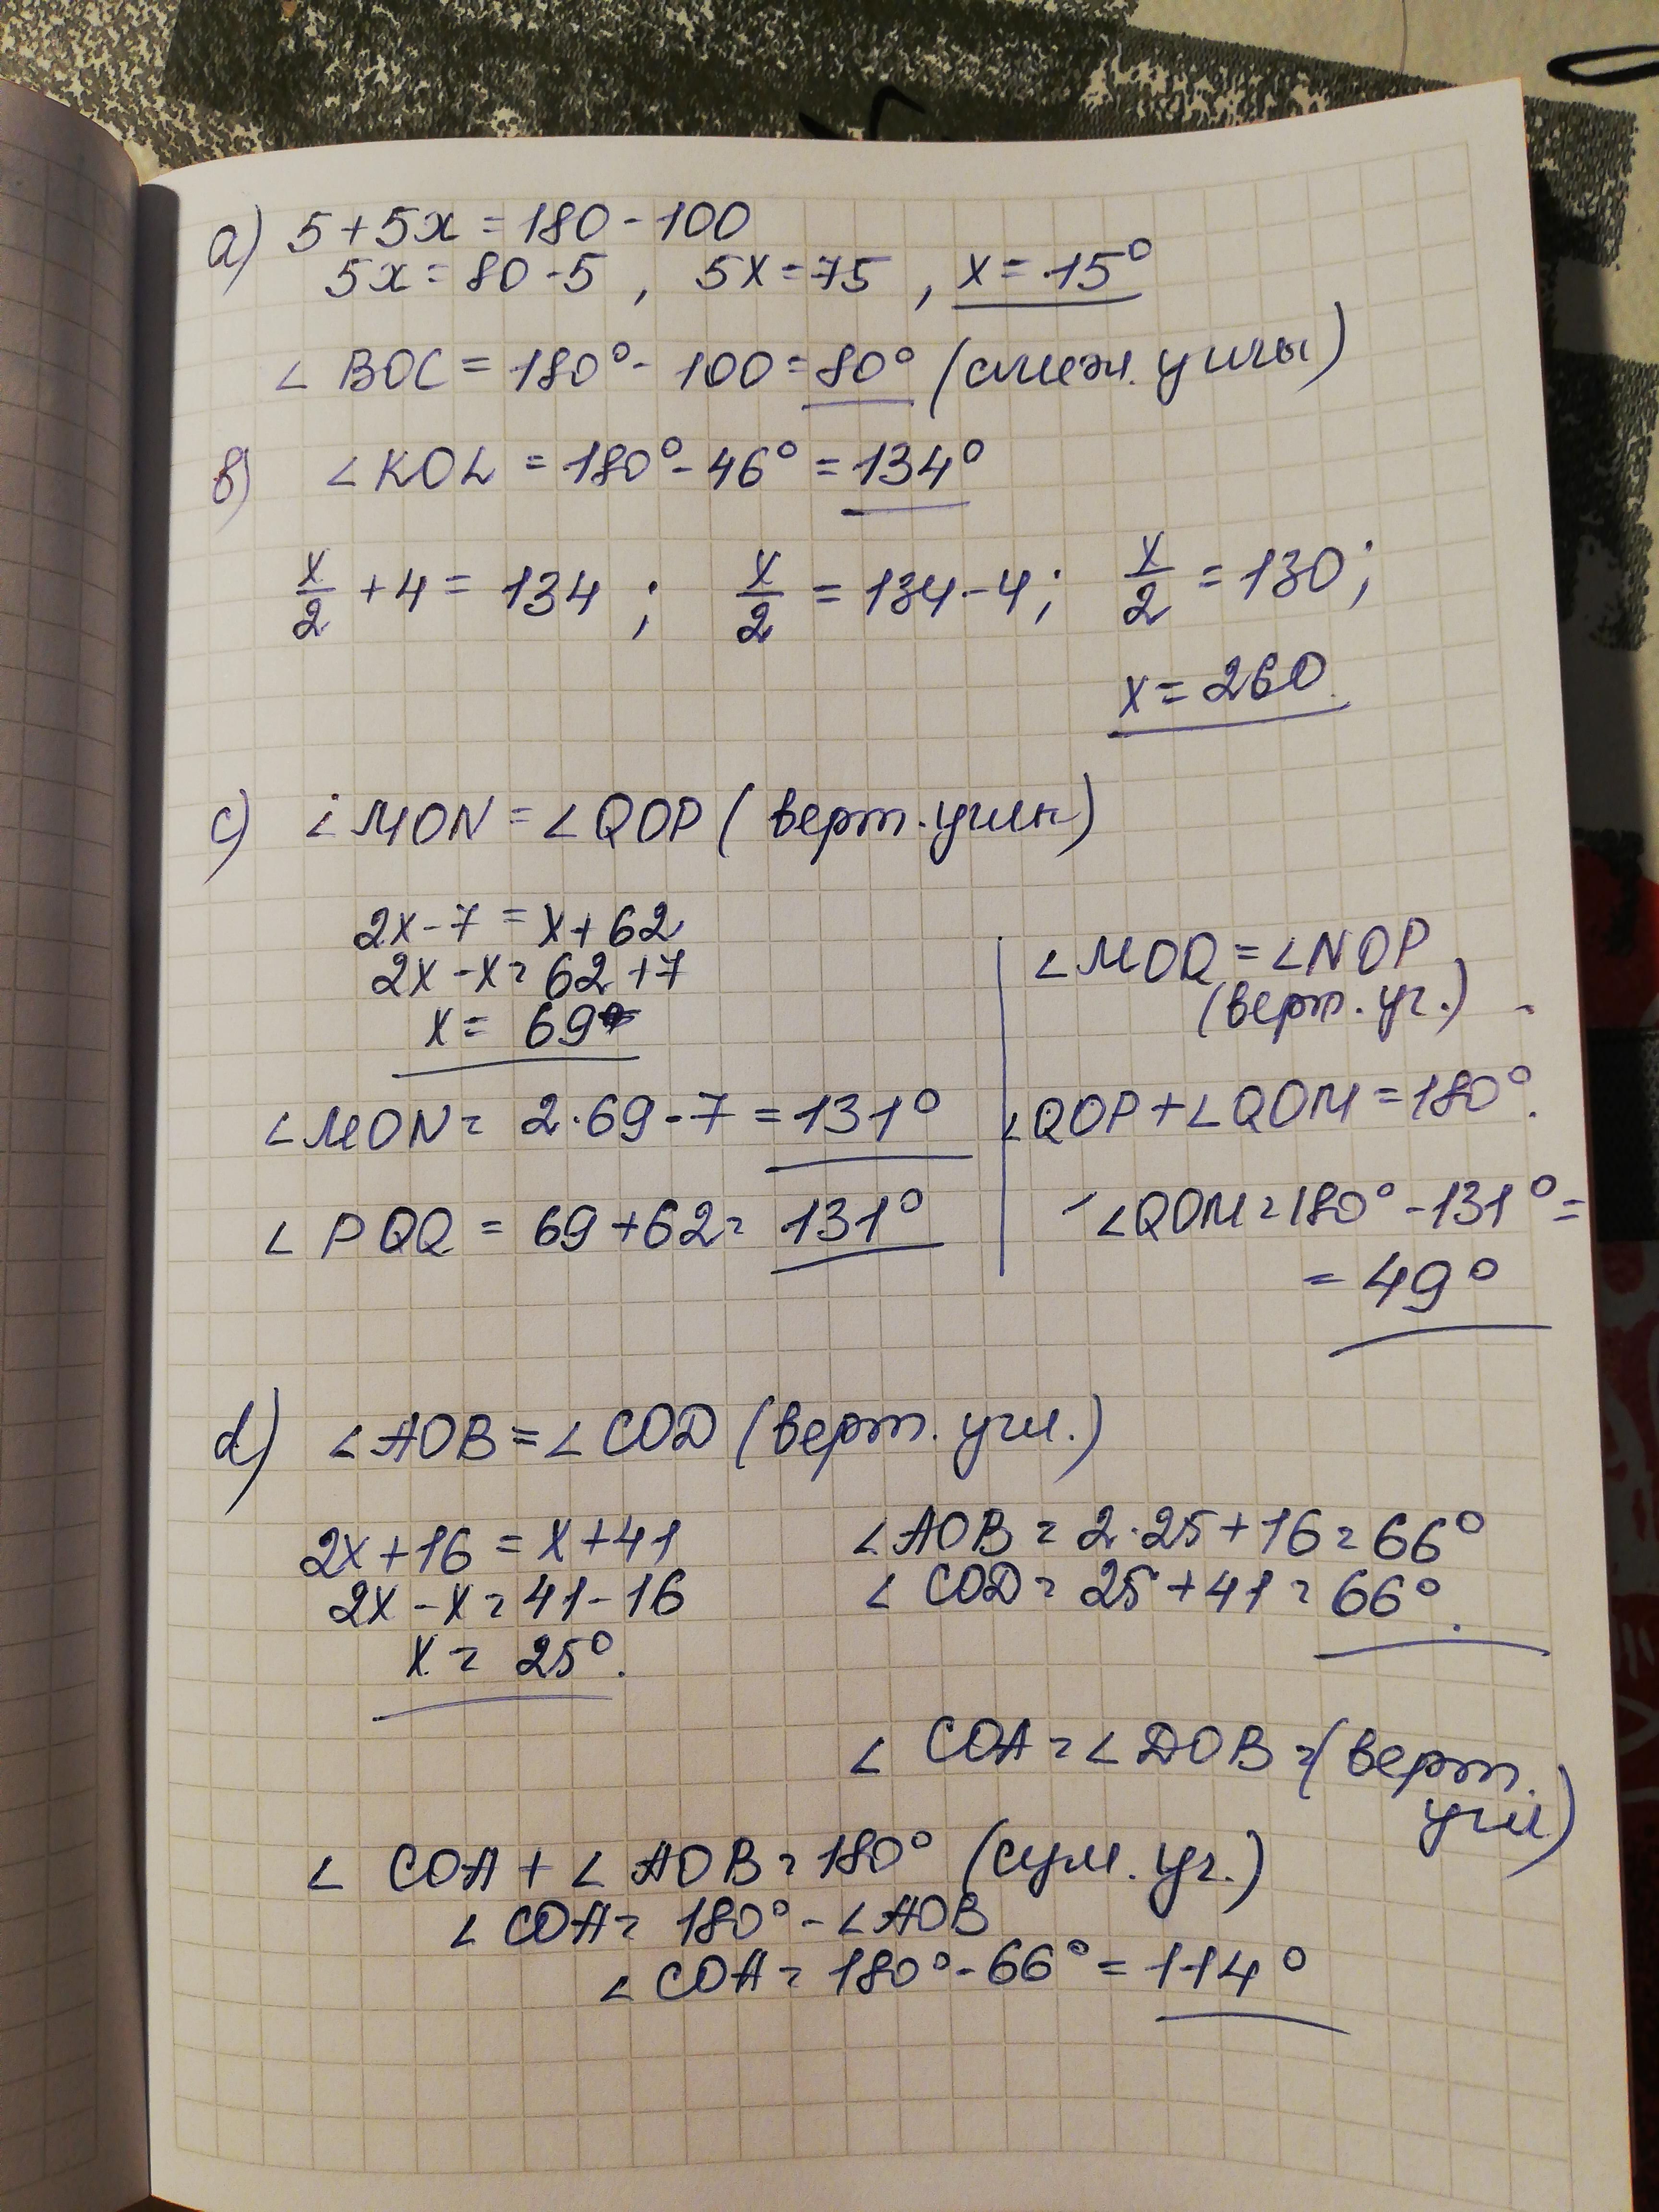 a) 5+5x=180-100
5x=80-5, 5x=75, x=15°
∠BOC=180°-100=80° (смеж. углы)
в) ∠KOL=180°-46°=134°
x/2+4=134; x/2=134-4; x/2=130;
x=260.
c) ∠MON=∠QOP (верт. углы)
2x-7=x+62
2x-x=62+7
x=69
∠MON=2·69-7=131°
∠PQQ=69+62=131°
∠MOQ=∠NOP
(верт. уг.)
∠QOP+∠QOM=180°.
∠QOM=180°-131°=
=49°
d) ∠AOB=∠COD (верт. угл.)
2x+16=x+41
2x-x=41-16
x=25°.
∠AOB=2·25+16=66°
∠COD=25+41=66°.
∠COA=∠DOB=(верт.
угл)
∠COA+∠AOB=180° (сум. уг.)
∠COA=180°-∠AOB
∠COA=180°-66°=114°